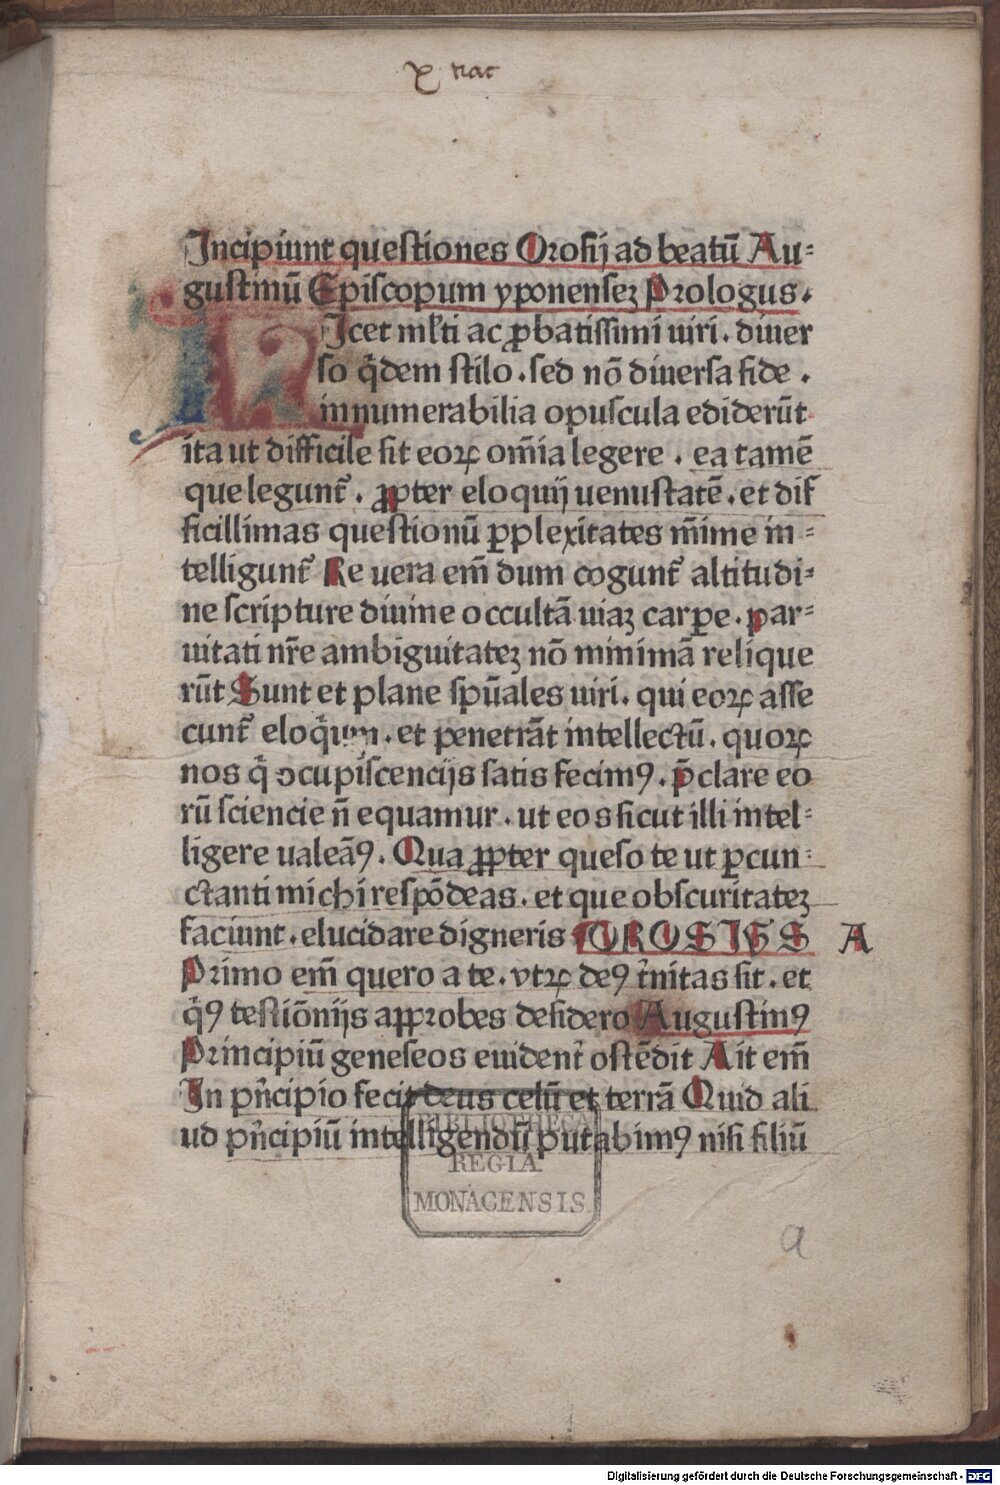 Incipiunt questiones Orosij ad beatū Au⸗
gustinū Episcopum yponensez Prologus.
LIcet ml̄ti ac ꝓbatissimi uiri. diuer
so q̄dem stilo. sed nō diuersa fide.
innumerabilia opuscula ediderūt
ita ut difficile sit eoꝝ om̄ia legere. ea tamē
que legunt᷑. ꝓpter eloquij uenustatē. et dif
ficillimas questionū ꝑplexitates m̄ime in⸗
telligunt᷑ Re uera em̄ dum cogunt᷑ altitudi⸗
ne scripture diuine occultā uiaz carꝑe. par⸗
uitati nr̄e ambiguitatez nō minimā relique
rūt Sunt et plane spūales uiri. qui eoꝝ asse
cunt᷑ eloq̄ium. et penetrāt intellectū. quoꝝ
nos q̄ ꝯcupiscencijs satis fecimꝰ. p̄clare eo
rū sciencie n̄ equamur. ut eos sicut illi intel⸗
ligere ualeāꝰ. Qua ꝓpter queso te ut ꝑcun⸗
ctanti michi respōdeas. et que obscuritatez
faciunt. elucidare digneris OROSIVS A
Primo em̄ quero a te. vtꝝ deꝰ t̄nitas sit. et
q̄ꝰ testiōnijs approbes desidero Augustinꝰ
Principiū geneseos euident᷑ ostēdit Ait em̄
In pn̄cipio fecit deus celū et terrā Quid ali
ud pn̄cipiū intelligendū putabimꝰ nisi filiū
BIBLIOTHECA
REGIA
MONACENSIS
a
Digitalisierung gefördert durch die Deutsche Forschungsgemeinschaft - DFG